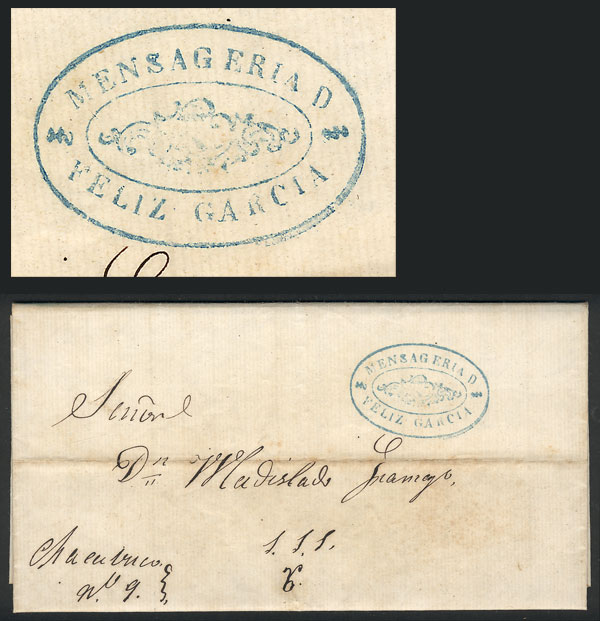 MENSAGERIA D
FELIZ GARCIA
MENSAGERIA D
FELIZ GARCIA
Señor
Dn Uladislado
S.S.S.
Chacabuco
nº 9.